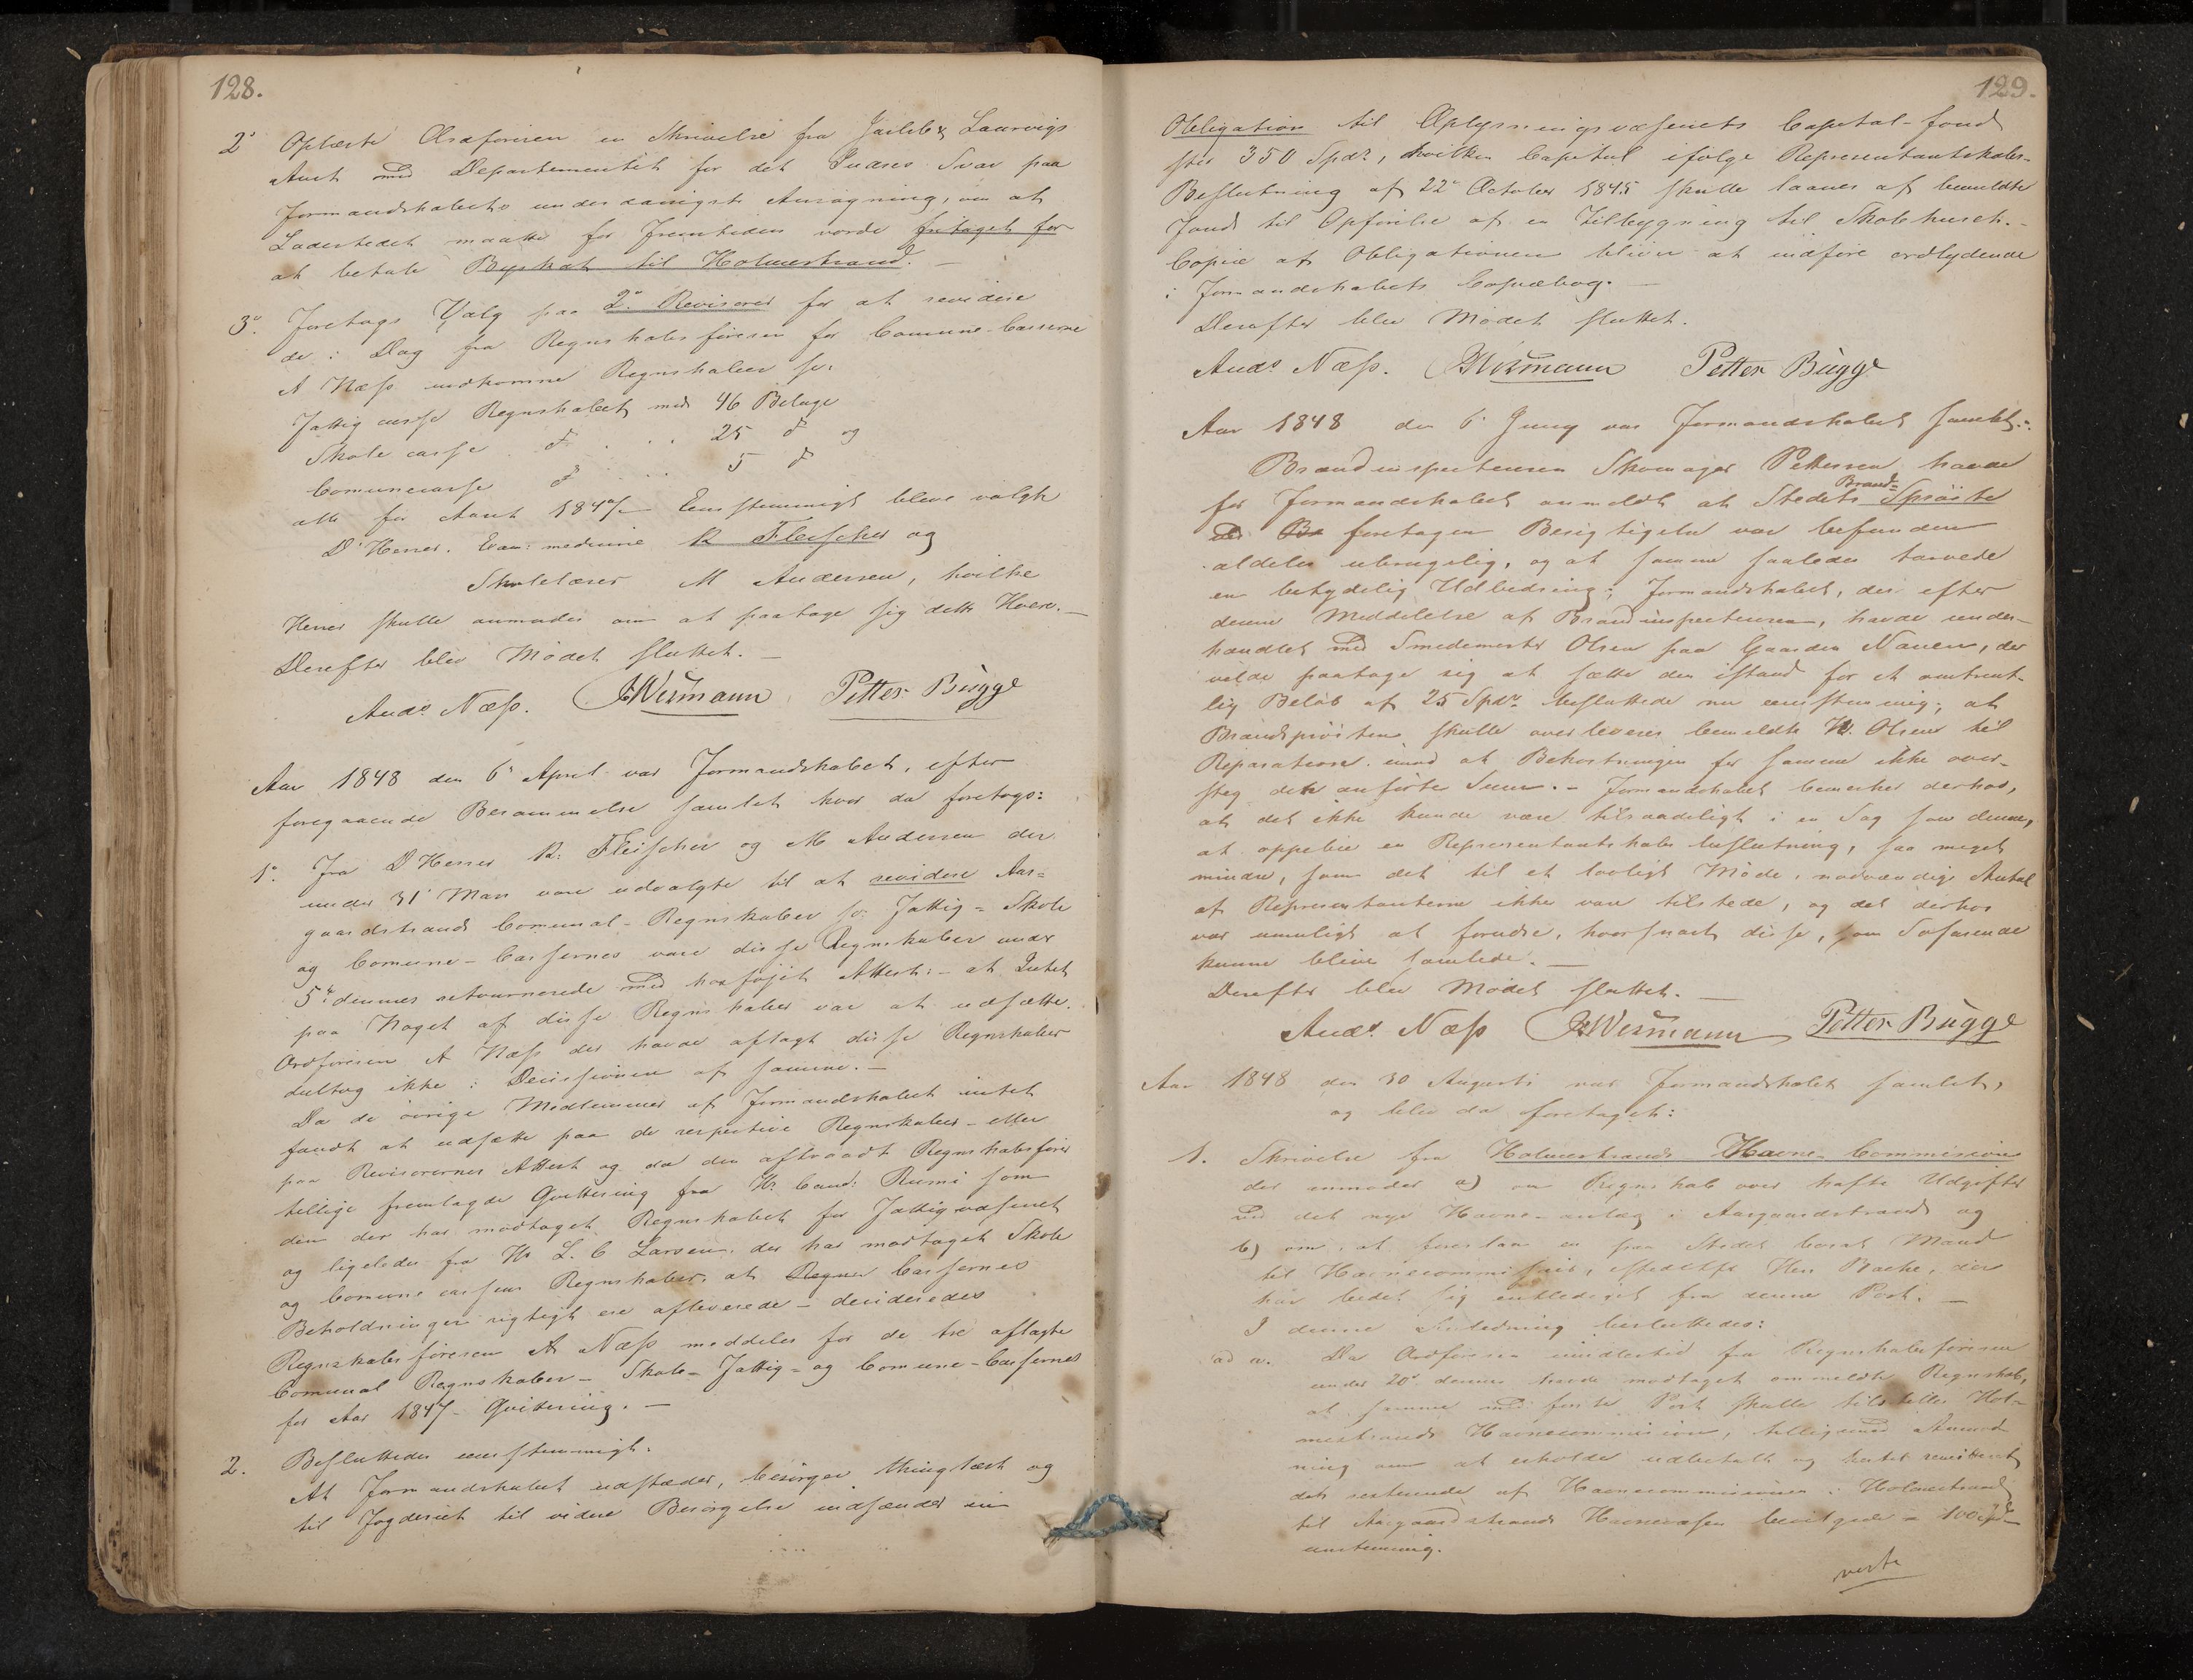 128.
2° Oplæste Ordføreren en Skrivelse fra Jarlsberg Laurvigs
Amt med Departementet for det Indres Svar paa
Formandskabets underdanigste Ansøgning, om at
Ladestedet maatte for Fremtiden vorde fritaget for
at betale Byskat til Holmestrand. —
3°. Foretoges Valg paa 2° Revisorer for at revidere
de i Dag fra Regnskabsføreren for Comune-Casserne
A Næss indkomne Regnskaber so:
Fattig casse Regnskabet med 46 Belage
Skole casse d° . . . 25 d° og
Comunecasse d° . . . 5 d°
alle for Aaret 1847 — Eensstemmigt bleve valgte
D'Herrer. Exam: medicine R Fleischer og
Skolelærer M Andersen, hvilke
Herrer skulle anmodes om at paatage sig dette Hverv. —
Derefter blev Mødet sluttet. —
Ands Næss. Wismann Petter Bugge
Aar 1848 den 6' April var Formandskabet, efter
foregaaende Berammelse samlet hvor da foretogs:
1°. Fra D'Herrer R: Fleischer og M Andersen der
under 31' Mars vare udvalgte til at revidere Aas=
gaardstrands Comunal-Regnskaber so: Fattig= Skole
og Comune-Cassernes vare disse Regnskaber under
5te dennes retournerede med hosføjet Attest: — at Intet
paa Noget af disse Regnskaber var at udsætte.
Ordføreren A Næss der havde aflagt disse Regnskaber
deltog ikke i Decissionen af samme. —
Da de øvrige Medlemmer af Formandskabet intet
fandt at udsætte paa de respective Regnskaber — eller
paa Revisorernes Attest og da den aftraadt Regnskabsfører
tillige fremlagde Qvittering fra Hr. Cand: Rumi som
den der har modtaget Regnskabet for Fattigvæsenet
og ligeledes fra Hr L. C Larsen, der har modtaget Skole
og Comune cassens Regnskaber, at Cassernes
Beholdninger rigtigt ere afleverede — decideredes
Regnskabsføreren A Næss meddeles for de tre aflagte
Comunal Regnskaber — Skole- Fattig= og Comune-Cassernes
for Aar 1847 — Qvittering. —
2. Besluttedes eensstemmigt:
At Formandskabet udstæder, besørger thinglæst og
til Fogderiet til videre Besørgelse indsender en
129.
Obligation til Oplysningsvæsenets Capital-fond
stor 350 Spdr, hvilken Capital ifølge Representantskabs-
Beslutning af 22' October 1845 skulle laanes af bemeldte
Fond til Opførelse af en Tilbygning til Skolehuset. —
Copie af Obligationen bliver at indføre ordlydende
i Formandskabets Copiebog. —
Derefter blev Mødet sluttet.
Ands Næss. Wismann Petter Bugge
Aar 1848 den 6' Juny var Formandskabet samlet:
Brandinspecteuren Skomager Pettersen havde
for Formandskabet anmeldt at Stedets Brand= Sprøite
ved foretagen Besigtigelse var befunden
aldeles ubrugelig, og at samme saaledes tarvede
en betydelig Udbedring; Formandskabet, der efter
denne Meddelelse af Brandinspecteuren, havde under-
handlet med Smedemester Olsen paa Gaarden Nauen, der
vilde paatage sig at sætte den istand for et omtrent-
lig Beløb af 25 Spdr besluttede nu eenstemmig; at
Brandsprøiten skulle overleveres bemeldte Hr. Olsen til
Reparation, imod at Bekostningen for samme ikke over-
steg dette anførte Sum. — Formandskabet bemerker derhos,
at det ikke kunde være tilraadeligt i en Sag som denne,
at oppebie en Representantskabs beslutning, saa meget
mindre, som det til et lovligt Møde, nødvendige Antal
af Representanterne ikke vare tilstede, og det derhos
var umuligt at forudse, hvorsnart disse, som Søfarende
kunne blive samlede. —
Derefter blev Mødet sluttet. —
Ands Næss Wismann Petter Bugge
Aar 1848 den 30 Augusti var Formandskabet samlet,
og blev da foretaget:
1. Skrivelse fra Holmestrands Havne-Commission
der anmoder a) om Regnskab over hafte Udgifter
ved det nye Havne-anlæg i Aasgaardstrand og
b) om, at foreslaa en paa Stedet bosat Mand
til Havnecommissair, istedetfor Herr Backe, der
har bedet sig entlediget fra denne Post. —
I denne Anledning besluttedes:
ad a. Da Ordføreren imidlertid fra Regnskabsføreren
under 20' dennes havde modtaget ommeldte Regnskab,
at samme med første Post skulle tilstilles Hol-
mestrands Havnecommission, tilligemed Anmod-
ning om at erholde udbetalt og
dets resterende af Havnecommissionen i Holmestrand
til Aasgaardstrands Havnevæsen bevilgede 100 Spd
eenstemmig.
verte